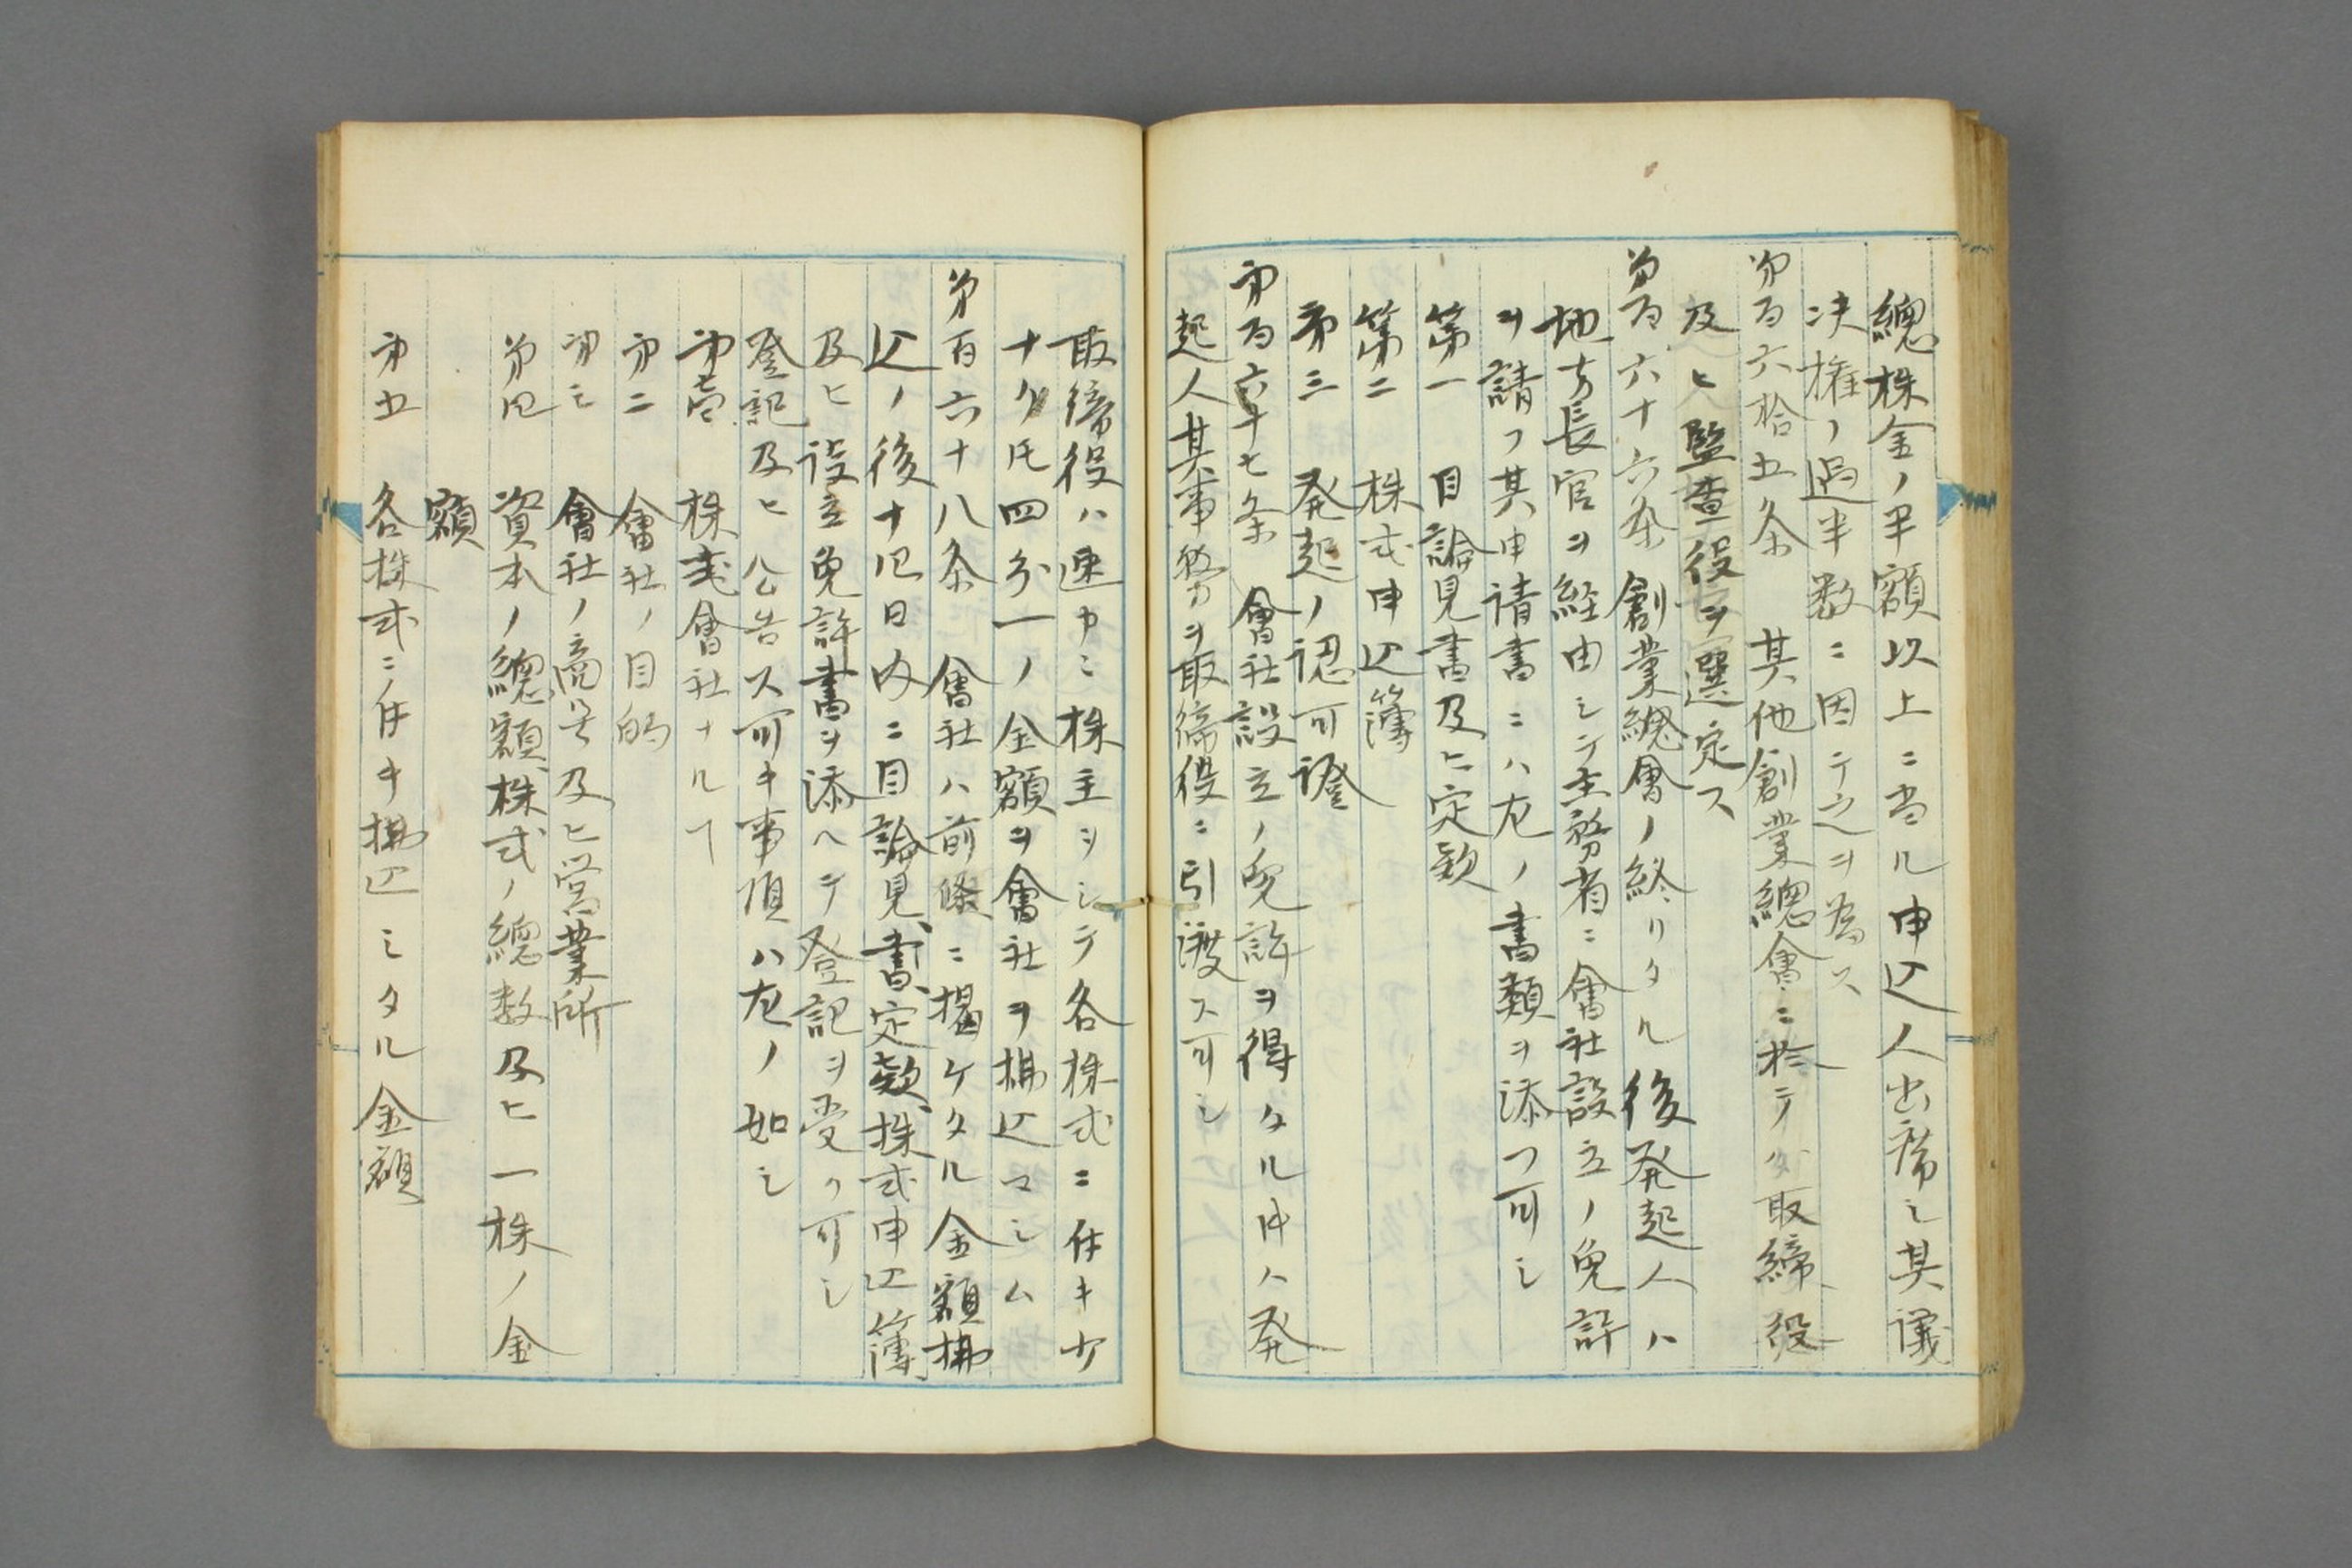 總株金ノ半額以上ニ当ル申込人出席シ其議
决權ノ過半数ニ因テ之ヲ為ス
第百六拾五条 其他創業總會ニ於テハ取締役
及ヒ監査役ヲ選定ス
第百六十六条 創業總會ノ終リタル後発起人ハ
地方長官ヲ経由シテ主務省ニ會社設立ノ免許
ヲ請フ其申請書ニハ左ノ書類ヲ添フ可シ
第一 目論見書及ヒ定款
第二 株式申込簿
第三 発起ノ認可證
第百六十七条 會社設立ノ免許ヲ得タル时ハ発
起人其事務ヲ取締役ニ引渡ス可シ
取締役ハ速カニ株主ヲシテ各株式ニ付キ少
ナクトモ四分一ノ金額ヲ會社ヲ拂込マシム
第百六十八条 會社ハ前條ニ掲ケタル金額拂
込ノ後十四日内ニ目論見書、定款、株式申込簿
及ヒ設立免許書ヲ添ヘテ登記ヲ受ク可シ
登記及ヒ公告ス可キ事項ハ左ノ如シ
第壱 株式會社ナルヿ
第二 會社ノ目的
第三 會社ノ商号及ヒ営業所
第四 資本ノ總額、株式ノ總数及ヒ一株ノ金
額
第五 各株式ニ付キ拂込シタル金額